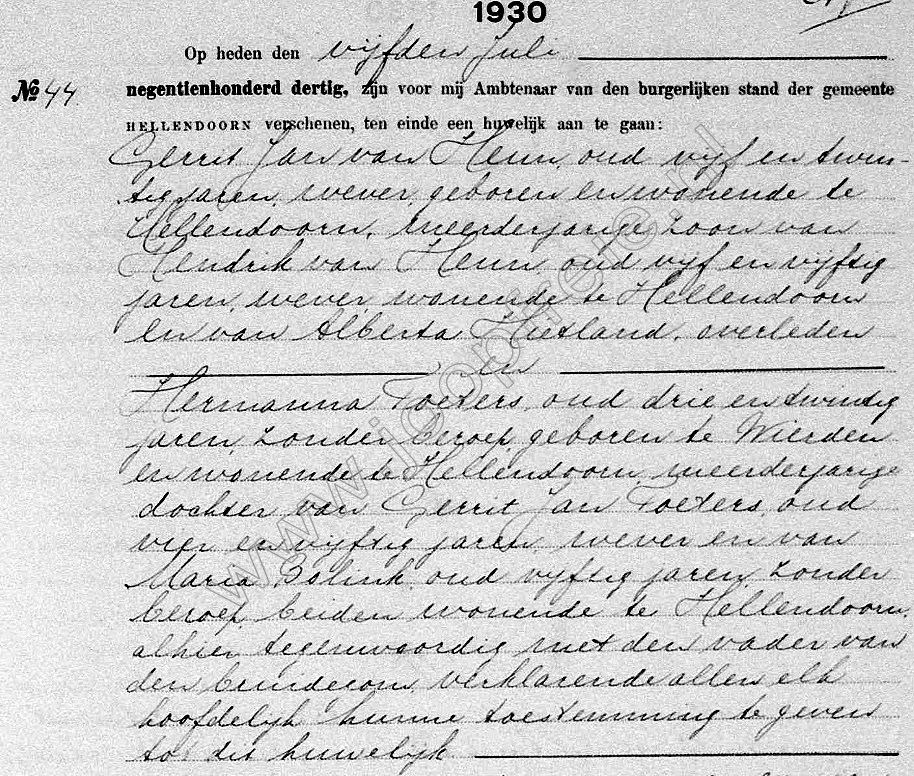 1930
Op heden den vijfden Juli
No 44 negentienhonderd dertig, zijn voor mij Ambtenaar van den burgerlijken stand der gemeente
HELLENDOORN verschenen, ten einde een huwelijk aan te gaan:
Gerrit Jan van Heun, oud vijf en twin-
tig jaren, wever, geboren en wonende te
Hellendoorn, meerderjarige zoon van
Hendrik van Heun, oud vijf en vijftig
jaren, wever, wonende te Hellendoorn
en van Alberta, overleden
en
Hermanna Poeters, oud drie en twintig
jaren, zonder beroep, geboren te Wierden
en wonende te Hellendoorn, meerderjarige
dochter van Gerrit Jan Poeters, oud
vier en vijftig jaren, wever en van
Maria, oud vijftig jaren, zonder
beroep, beiden wonende te Hellendoorn,
alhier tegenwoordig met den vader van
den bruidegom, verklarende allen elk
hoofdelijk hunne toestemming te geven
tot dit huwelijk
www.jooptreie.nl